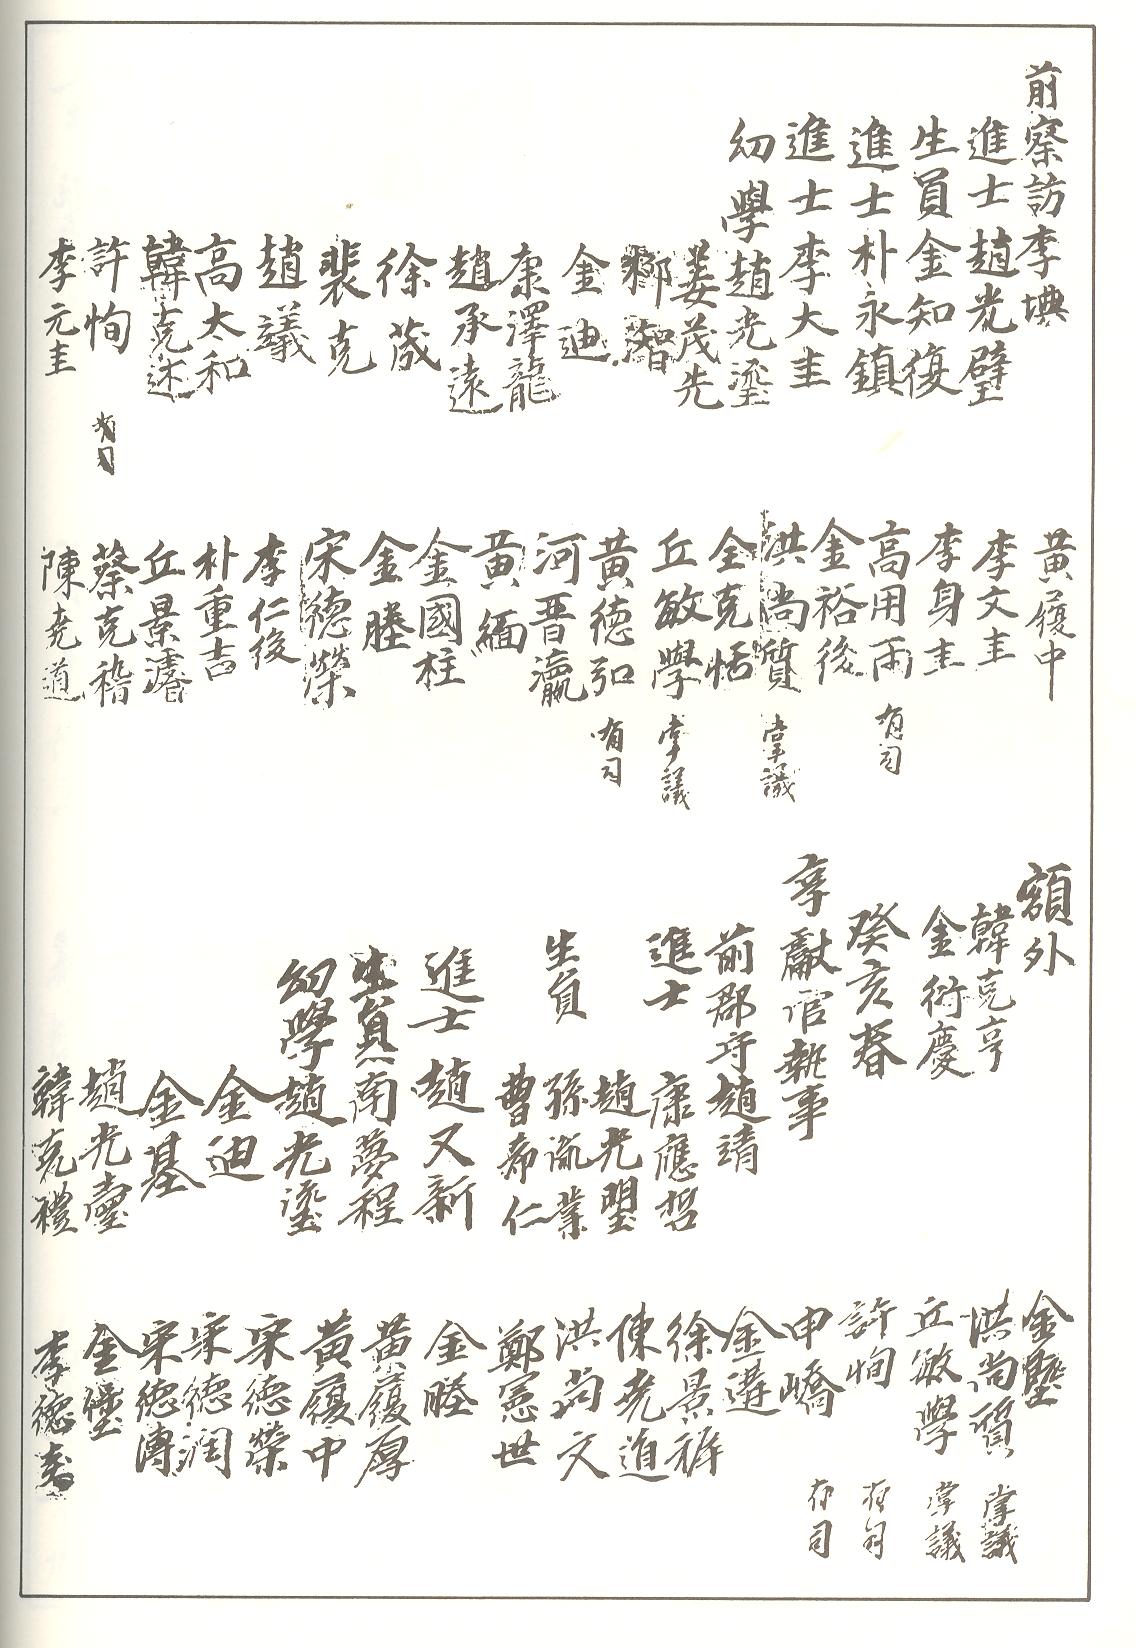 前察訪李㙉
進士趙光璧
生員金知復
進士朴永鎮
進士李大圭
幼學趙光瑬
姜茂先
鄭智
金迪
康澤龍
趙承遠
徐葴
裴克
趙議
高太和
韓克述
許恂 有司
李元圭
黃履中
李文圭
李身圭
高用雨 有司
金裕後
洪尚質 掌議
全克恬
丘敏學 掌議
黃德弘 有司
河晋瀛
黃緬
金國柱
金塍
宋德榮
李仁後
朴重吉
丘景濬
蔡克稽
陳尭道
額外
韓克亨
金衍慶
癸亥春
享獻官執事
前郡守趙靖
進士 康應哲
趙光瞾
生員 孫胤業
曹希仁
進士 趙又新
生員 南夢程
幼學趙光瑬
金迪
金基
趙光臺
韓克禮
金墍
洪尚質 掌議
丘敏學 掌議
許恂 有司
申嶠 有司
金遘
徐景裤
陳尭道
洪尚文
鄭憲世
金塍
黃履厚
黃履中
宋德榮
宋德潤
宋德溥
金墭
李德